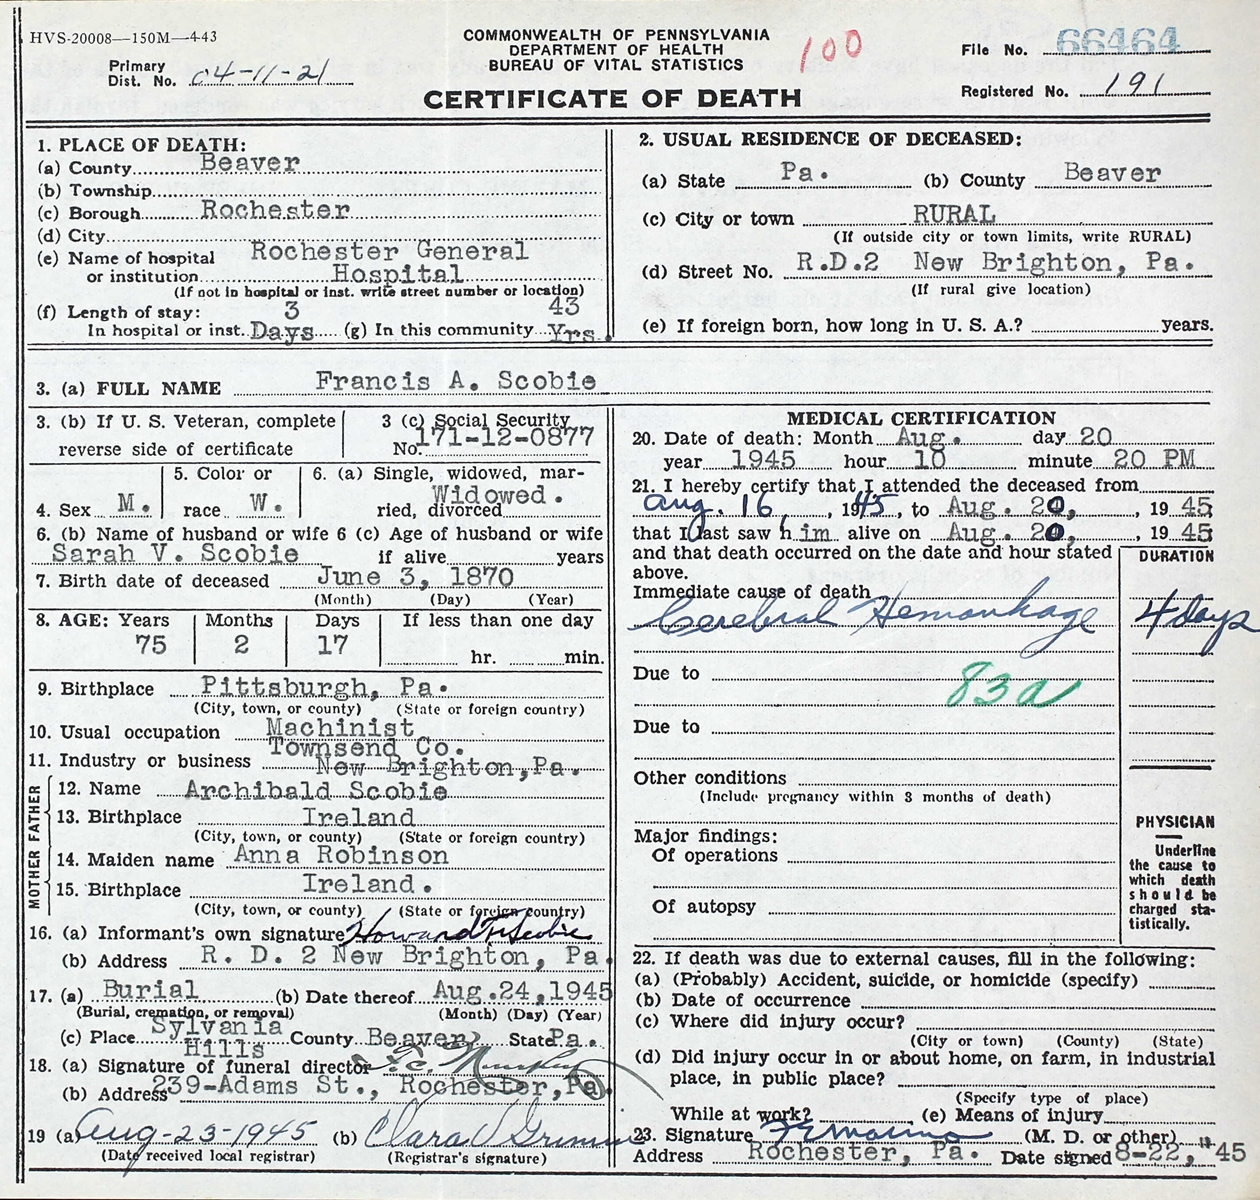 HVS-20008—150M—4-43
COMMONWEALTH OF PENNSYLVANIA
DEPARTMENT OF HEALTH
BUREAU OF VITAL STATISTICS
100
File No. 66464
Primary
Dist. No. 04-11-21
Registered No. 191
CERTIFICATE OF DEATH
1. PLACE OF DEATH:
(a) County Beaver
(b) Township
(c) Borough Rochester
(d) City
(e) Name of hospital Rochester General
or institution Hospital
(If not in hospital or inst. write street number or location)
(f) Length of stay: 3 43
In hospital or inst. Days (g) In this community Yrs.
2. USUAL RESIDENCE OF DECEASED:
(a) State Pa. (b) County Beaver
(c) City or town RURAL
(If outside city or town limits, write RURAL)
(d) Street No. R.D.2 New Brighton, Pa.
(If rural give location)
(e) If foreign born, how long in U. S. A.? years.
3. (a) FULL NAME Francis A. Scobie
3. (b) If U. S. Veteran, complete
reverse side of certificate
3 (c) Social Security
No. 171-12-0877
4. Sex M.
5. Color or
race W.
6. (a) Single, widowed, mar-
ried, divorced Widowed.
6. (b) Name of husband or wife 6 (c) Age of husband or wife
Sarah V. Scobie if alive years
7. Birth date of deceased June 3, 1870
(Month) (Day) (Year)
8. AGE: Years Months Days If less than one day
75 2 17 hr. min.
9. Birthplace Pittsburgh, Pa.
(City, town, or county) (State or foreign country)
10. Usual occupation Machinist
Townsend Co.
11. Industry or business New Brighton,Pa.
FATHER
12. Name Archibald Scobie
13. Birthplace Ireland
(City, town, or county) (State or foreign country)
MOTHER
14. Maiden name Anna Robinson
15. Birthplace Ireland.
(City, town, or county) (State or foreign country)
16. (a) Informant's own signature Howard Scobie
(b) Address R. D. 2 New Brighton, Pa.
17. (a) Burial (b) Date thereof Aug.24,1945
(Burial, cremation, or removal) (Month) (Day) (Year)
(c) Place Sylvania Hills County Beaver State Pa.
18. (a) Signature of funeral director
(b) Address 239-Adams St., Rochester,Pa.
19 (a) Aug-23-1945 (b) Clara
(Date received local registrar) (Registrar's signature)
MEDICAL CERTIFICATION
20. Date of death: Month Aug. day 20
year 1945 hour 10 minute 20 PM
21. I hereby certify that I attended the deceased from
Aug. 16, 1945, to Aug. 20, 1945
that I last saw him alive on Aug. 20, 1945
and that death occurred on the date and hour stated
above.
DURATION
Immediate cause of death
Cerebral Hemorrhage 4 days
Due to
83a
Due to
Other conditions
(Include pregnancy within 3 months of death)
Major findings:
Of operations
Of autopsy
PHYSICIAN
Underline
the cause to
which death
should be
charged sta-
tistically.
22. If death was due to external causes, fill in the following:
(a) (Probably) Accident, suicide, or homicide (specify)
(b) Date of occurrence
(c) Where did injury occur?
(City or town) (County) (State)
(d) Did injury occur in or about home, on farm, in industrial
place, in public place?
(Specify type of place)
While at work? (e) Means of injury
23. Signature (M. D. or other)
Address Rochester, Pa. Date signed 8-22, 19 45